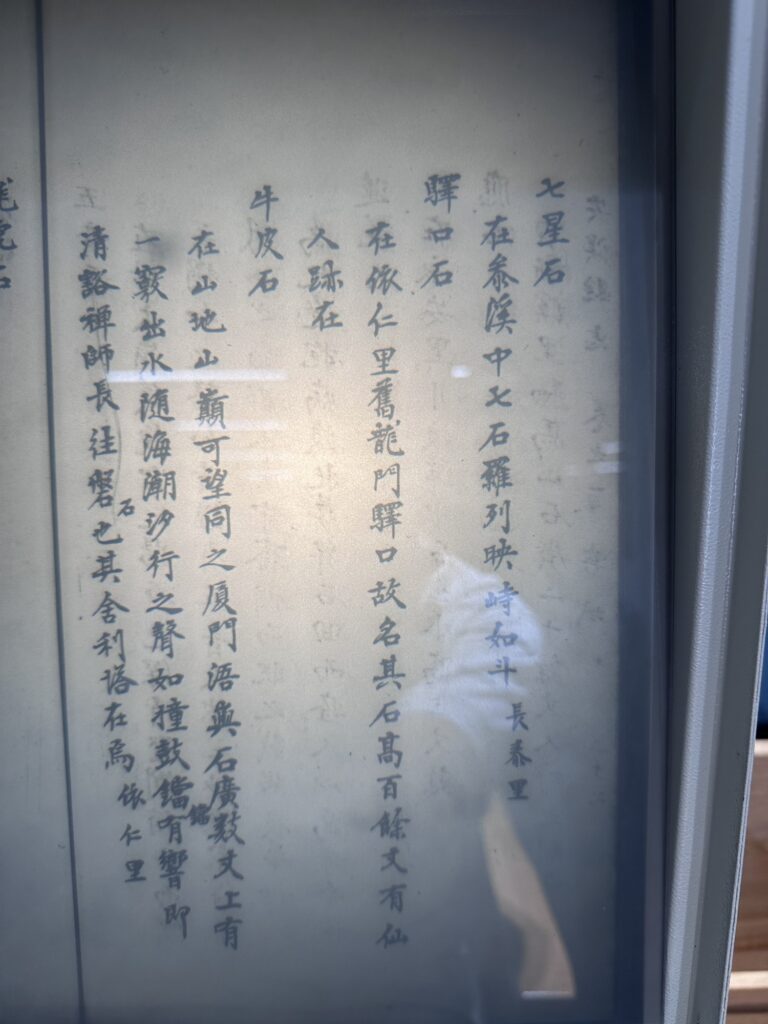 七星石
在叅溪中七石羅列映峙如斗 長泰里
驛口石
在依仁里舊龍門驛口故名其石高百餘丈有仙
人跡在
牛皮石
在山地山巔可望同之厦門浯與石廣数丈上有
一竅出水随海潮汐行之聲如撞鼓鐺鐺有響即
清谿禪師長徃磐石也其舍利塔在焉 依仁里